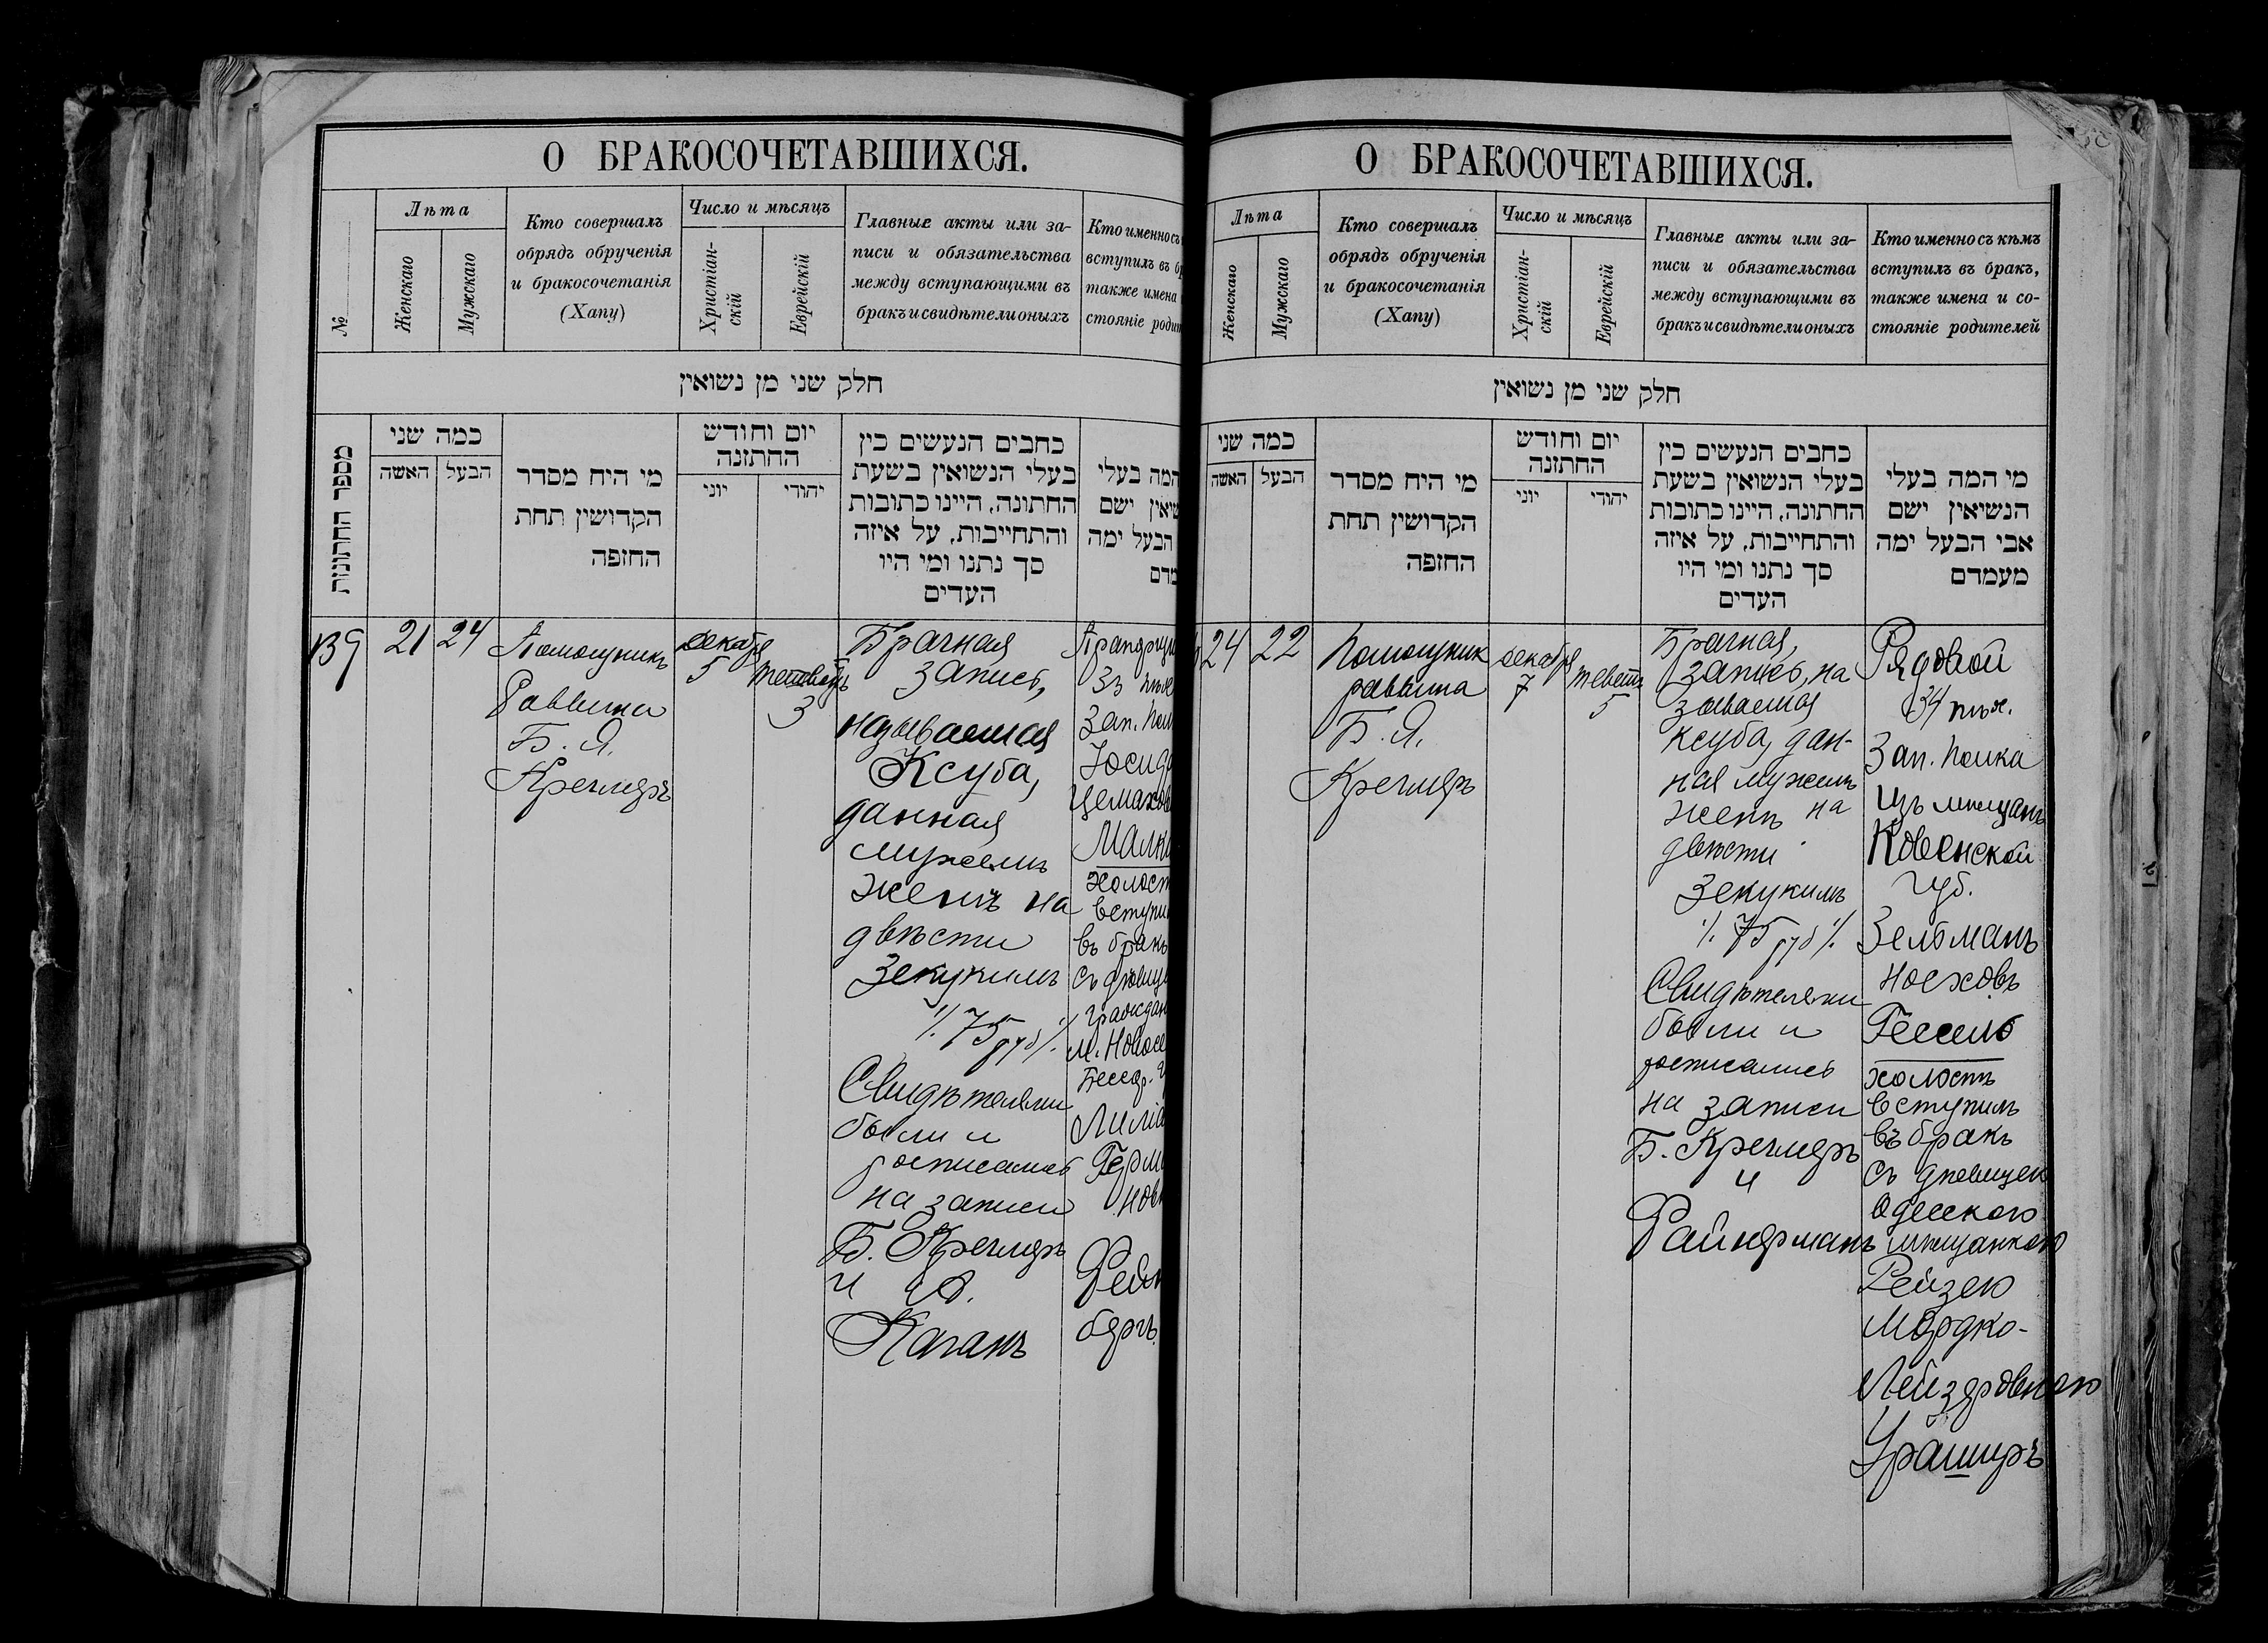 О БРАКОСОЧЕТАВШИХСЯ.
№
Лѣта
Женскаго
Мужскаго
Кто совершалъ
обрядъ обрученія
и бракосочетанія
(Хапу)
Число и мѣсяцъ
Христіан-
скій
Еврейскій
Главные акты или за-
писи и обязательства
между вступающими въ
бракъ и свидѣтели оныхъ
Кто именно съ
вступилъ въ б
также имена
стояніе роди
חלק שני מן נשואין
מספר החתונות
כמה שני
האשה
הבעל
מי היח מסדר
הקדושין תחת
החזפה
יום וחודש
החתזנה
יוני
יהודי
כחבים הנעשים כין
בעלי הנשואין בשעת
החתונה, היינו כתובות
והתחייבות, על איזה
סך נתנו ומי היו
העדים
המה בעלי
שיאין ישם
הבעל ימה
מדם
139
21
24
Помощникъ
Раввина
Б. Я.
Кречмеръ
декабря
5
тевейтъ
3
Брачная
запись,
называемая
Ксуба,
данная
мужемъ
женѣ на
двѣсти
Зекукимъ
./. 75 руб ./.
Свидѣтелями
были и
росписались
на записи
Б. Кречмеръ
и
Каганъ
33 пѣх
Зап. пол
Цемахов
Малк
холост
вступи
въ бракъ
съ дѣвиц
граждан
м. Новосе
Бессар. г
Лилі
Герм
нов
Фейн
бергъ
О БРАКОСОЧЕТАВШИХСЯ.
Лѣта
Женскаго
Мужскаго
Кто совершалъ
обрядъ обрученія
и бракосочетанія
(Хапу)
Число и мѣсяцъ
Христіан-
скій
Еврейскій
Главные акты или за-
писи и обязательства
между вступающими въ
бракъ и свидѣтели оныхъ
Кто именно съ кѣмъ
вступилъ въ бракъ,
также имена и со-
стояніе родителей
חלק שני מן נשואין
כמה שני
האשה
הבעל
מי היח מסדר
הקדושין תחת
החזפה
יום וחודש
החתזנה
יוני
יהודי
כחבים הנעשים כין
בעלי הנשואין בשעת
החתונה, היינו כתובות
והתחייבות, על איזה
סך נתנו ומי היו
העדים
מי המה בעלי
הנשיאין ישם
אבי הבעל ימה
מעמדם
24
22
Помощник
раввина
Б. Я.
Кречмеръ
декабря
7
тевейтъ
5
Брачная,
запись, на
зываемая
ксуба, дан-
ная мужемъ
женѣ на
двѣсти
Зекукимъ
./. 75 руб ./.
Свидѣтелями
были и
росписались
на записи
Б. Кречмеръ
и
Файнерманъ
Рядовой
34 пѣх.
Зап. полка
изъ мѣщанъ
Ковенской
губ.
Зельманъ
Ноеховъ
Гессель
холостъ
вступилъ
въ бракъ
съ дѣвицею
Одесскою
мѣщанкою
Рейзею
Мордко-
Лейзеровною
Ураширъ